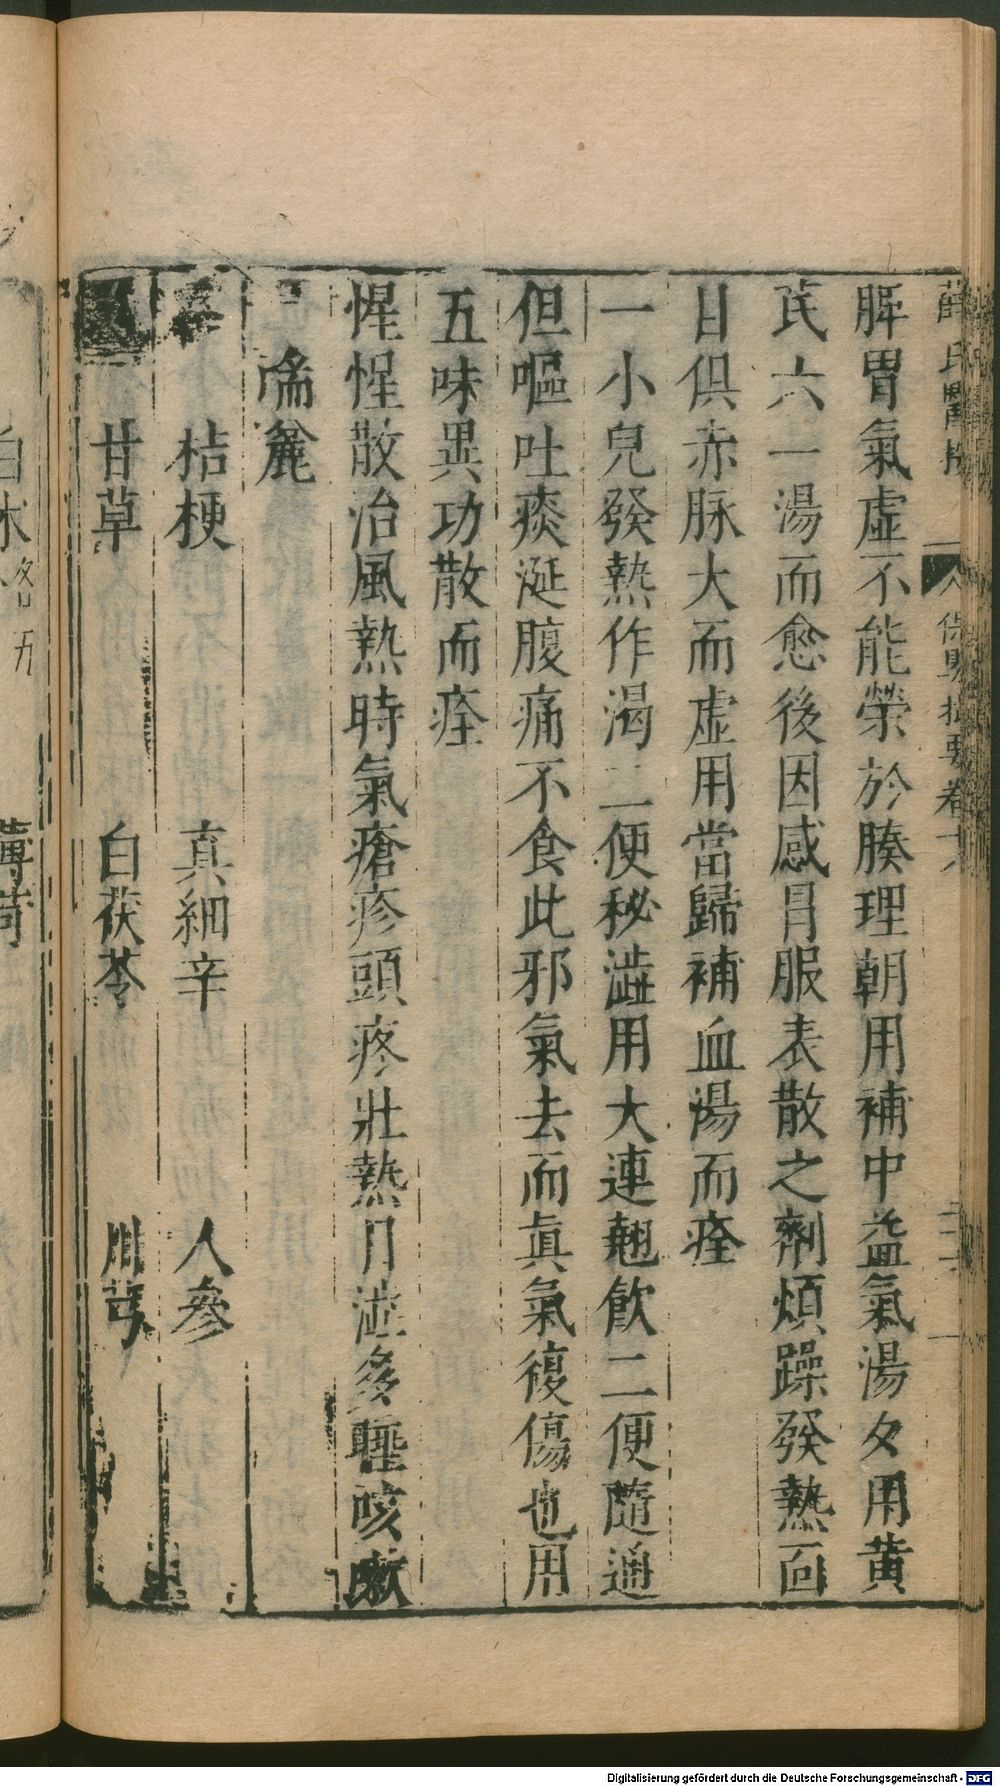 薛氏醫按 保嬰撮要卷十八
脾胃氣虛不能榮於腠理朝用補中益氣湯夕用黄
芪六一湯而愈後因感冒服表散之劑煩躁發熱面
目俱赤脉大而虛用當歸補血湯而痊
一小兒發熱作渴二便秘澁用大連翹飲二便隨通
但嘔吐痰涎腹痛不食此邪氣去而眞氣復傷也用
五味異功散而痊
惺惺散治風熱時氣瘡疹頭疼壯熱目澁多睡咳嗽
喘麄
桔梗 真細辛 人參
甘草 白茯苓 川芎
白朮各五
薄荷
Digitalisierung gefördert durch die Deutsche Forschungsgemeinschaft - DFG